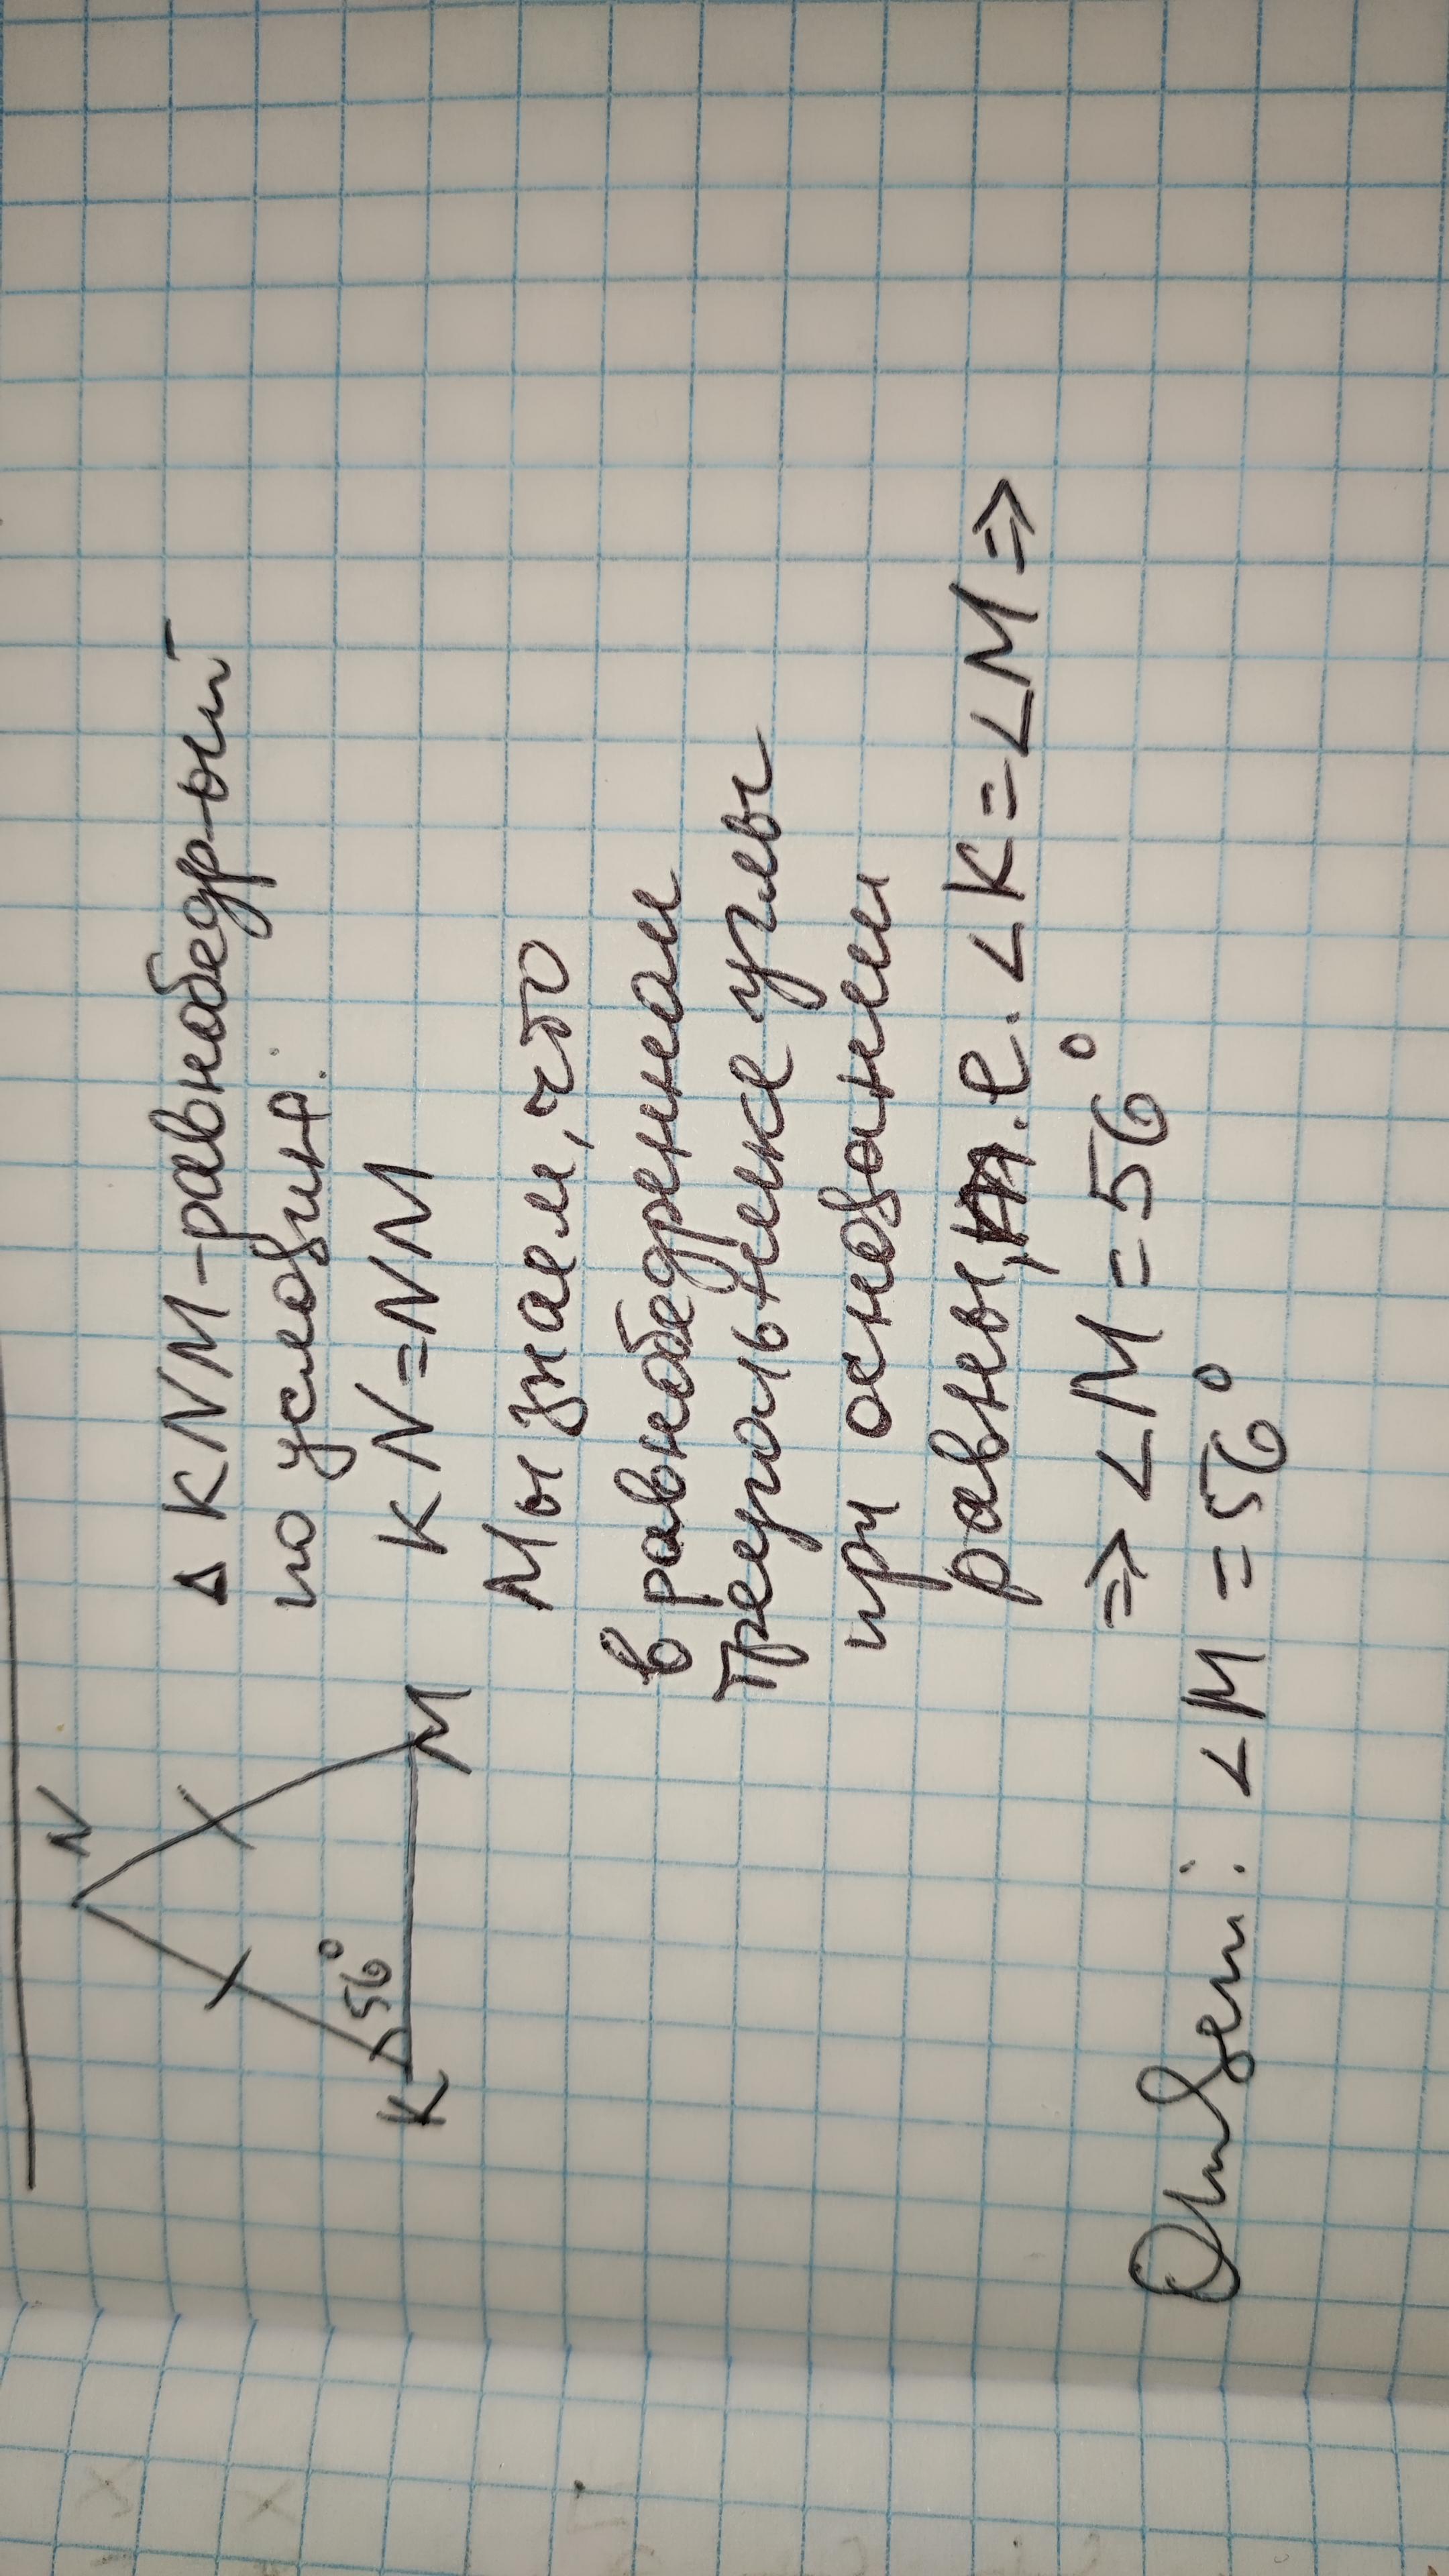 N
K
56°
M
Δ KNM-равнобедр-ый
по условию.
KN=NM
Мы знаем, что
в равнобедренном
треугольнике углы
при основании
равны, т.е. ∠K=∠M⇒
⇒ ∠M=56°
Ответ: ∠M=56°